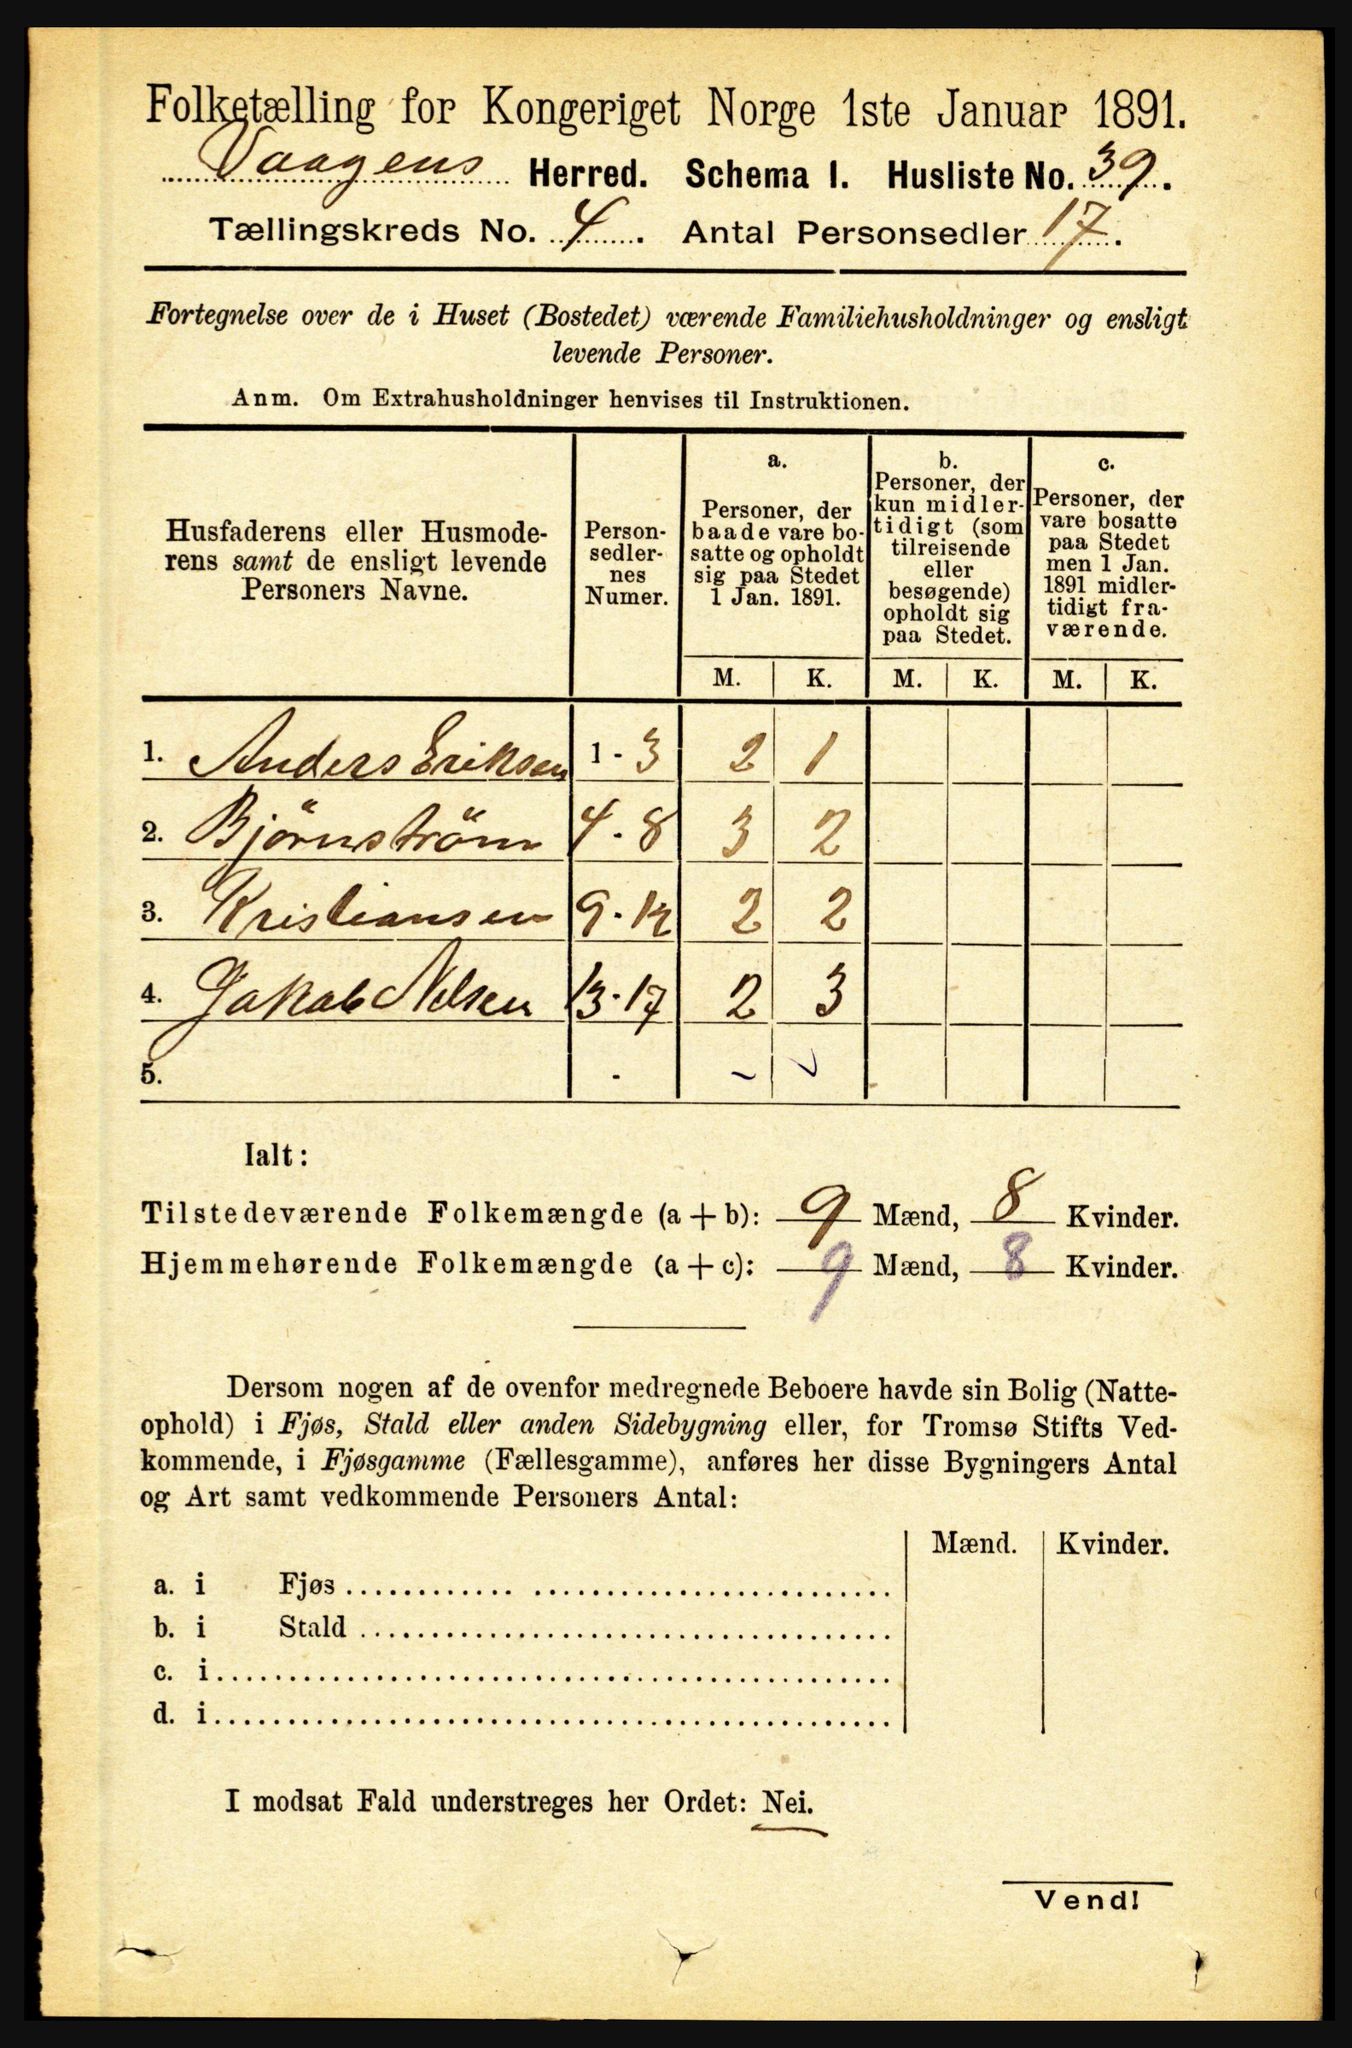 Folketælling for Kongeriget Norge 1ste Januar 1891.
Vaagens Herred. Schema I. Husliste No. 39.
Tællingskreds No. 4. Antal Personsedler 17.
Fortegnelse over de i Huset (Bostedet) værende Familiehusholdninger og ensligt
levende Personer.
Anm. Om Extrahusholdninger henvises til Instruktionen.
Husfaderens eller Husmode-
rens samt de ensligt levende
Personers Navne.
Person-
sedler-
nes
Numer.
a.
Personer, der
baade vare bo-
satte og opholdt
sig paa Stedet
1 Jan. 1891.
b.
Personer, der
kun midler-
tidigt (som
tilreisende
eller
besøgende)
opholdt sig
paa Stedet.
c.
Personer, der
vare bosatte
paa Stedet
men 1 Jan.
1891 midler-
tidigt fra-
værende.
M. K. M. K. M. K.
1. Anders Eriksen 1 - 3 2 1
2. Björnström 4 - 8 3 2
3. Kristiansen 9 - 12 2 2
4. Jakob Nilsen 13 - 17 2 3
5. -
Ialt:
Tilstedeværende Folkemængde (a + b): 9 Mænd, 8 Kvinder.
Hjemmehørende Folkemængde (a + c): 9 Mænd, 8 Kvinder.
Dersom nogen af de ovenfor medregnede Beboere havde sin Bolig (Natte-
ophold) i Fjøs, Stald eller anden Sidebygning eller, for Tromsø Stifts Ved-
kommende, i Fjøsgamme (Fællesgamme), anføres her disse Bygningers Antal
og Art samt vedkommende Personers Antal:
Mænd. Kvinder.
a. i Fjøs
b. i Stald
c. i
d. i
I modsat Fald understreges her Ordet: Nei.
Vend!